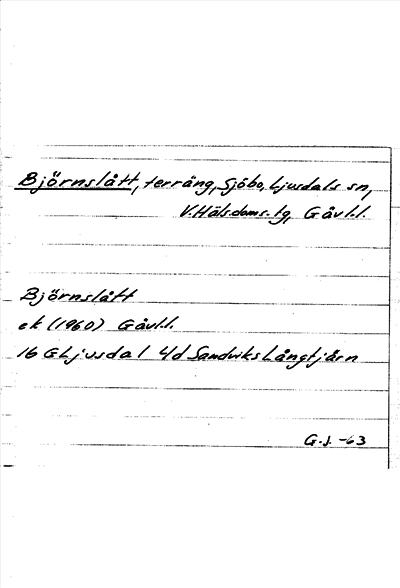 Björnslått, terräng, Sjöbo, Ljusdals sn,
V.Häls.doms.tg, Gävl.l.
Björnslått
ek (1960) Gävl.l.
16 G Ljusdal 4d Sandviks Långtjärn
G.J. -63